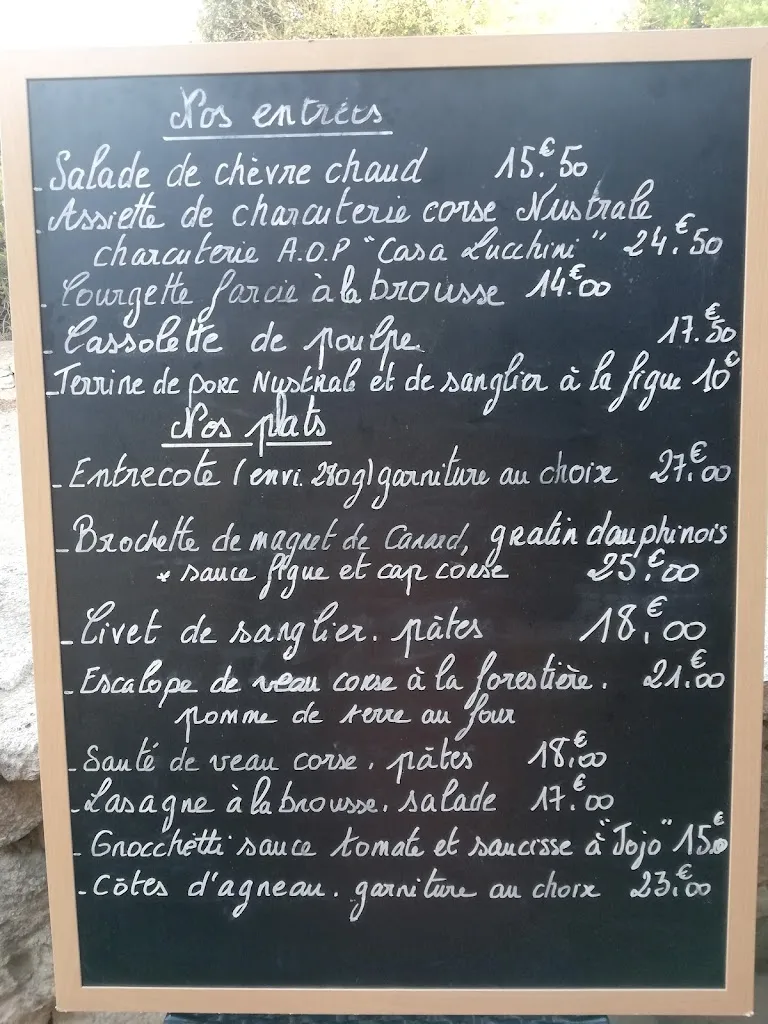 Nos entrées
- Salade de chèvre chaud 15.€50
- Assiette de charcuterie corse Nustrale
charcuterie A.O.P "Casa Lucchini" 24.€50
- Courgette farcie à la brousse 14.€00
- Cassolette de poulpe 17.€50
- Terrine de porc Nustrale et de sanglier à la figue 10€
Nos plats
- Entrecote (envi. 280g) garniture au choix 27.€00
- Brochette de magret de Canard, gratin dauphinois
* sauce figue et cap corse 25.€00
- Civet de sanglier. pâtes 18.€00
- Escalope de veau corse à la forestière. 21.€00
pomme de terre au four
- Sauté de veau corse. pâtes 18.€00
- Lasagne à la brousse. salade 17.€00
- Gnocchetti sauce tomate et saucisse à "Jojo" 15.€00
- Côtes d'agneau. garniture au choix 23.€00